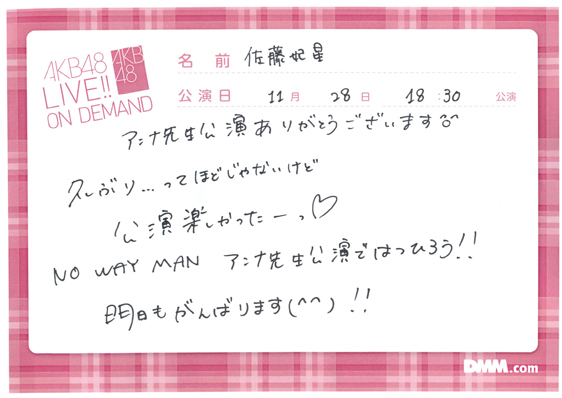 AKB48
LIVE!!
ON DEMAND
AKB
48
名前 佐藤妃星
公演日 11月 28日 18:30 公演
アンナ先生公演ありがとうございます
久しぶり...ってほどじゃないけど
公演楽しかったーっ♡
NO WAY MAN アンナ先生公演ではつひろう!!
明日もがんばります(^^)!!
DMM.com